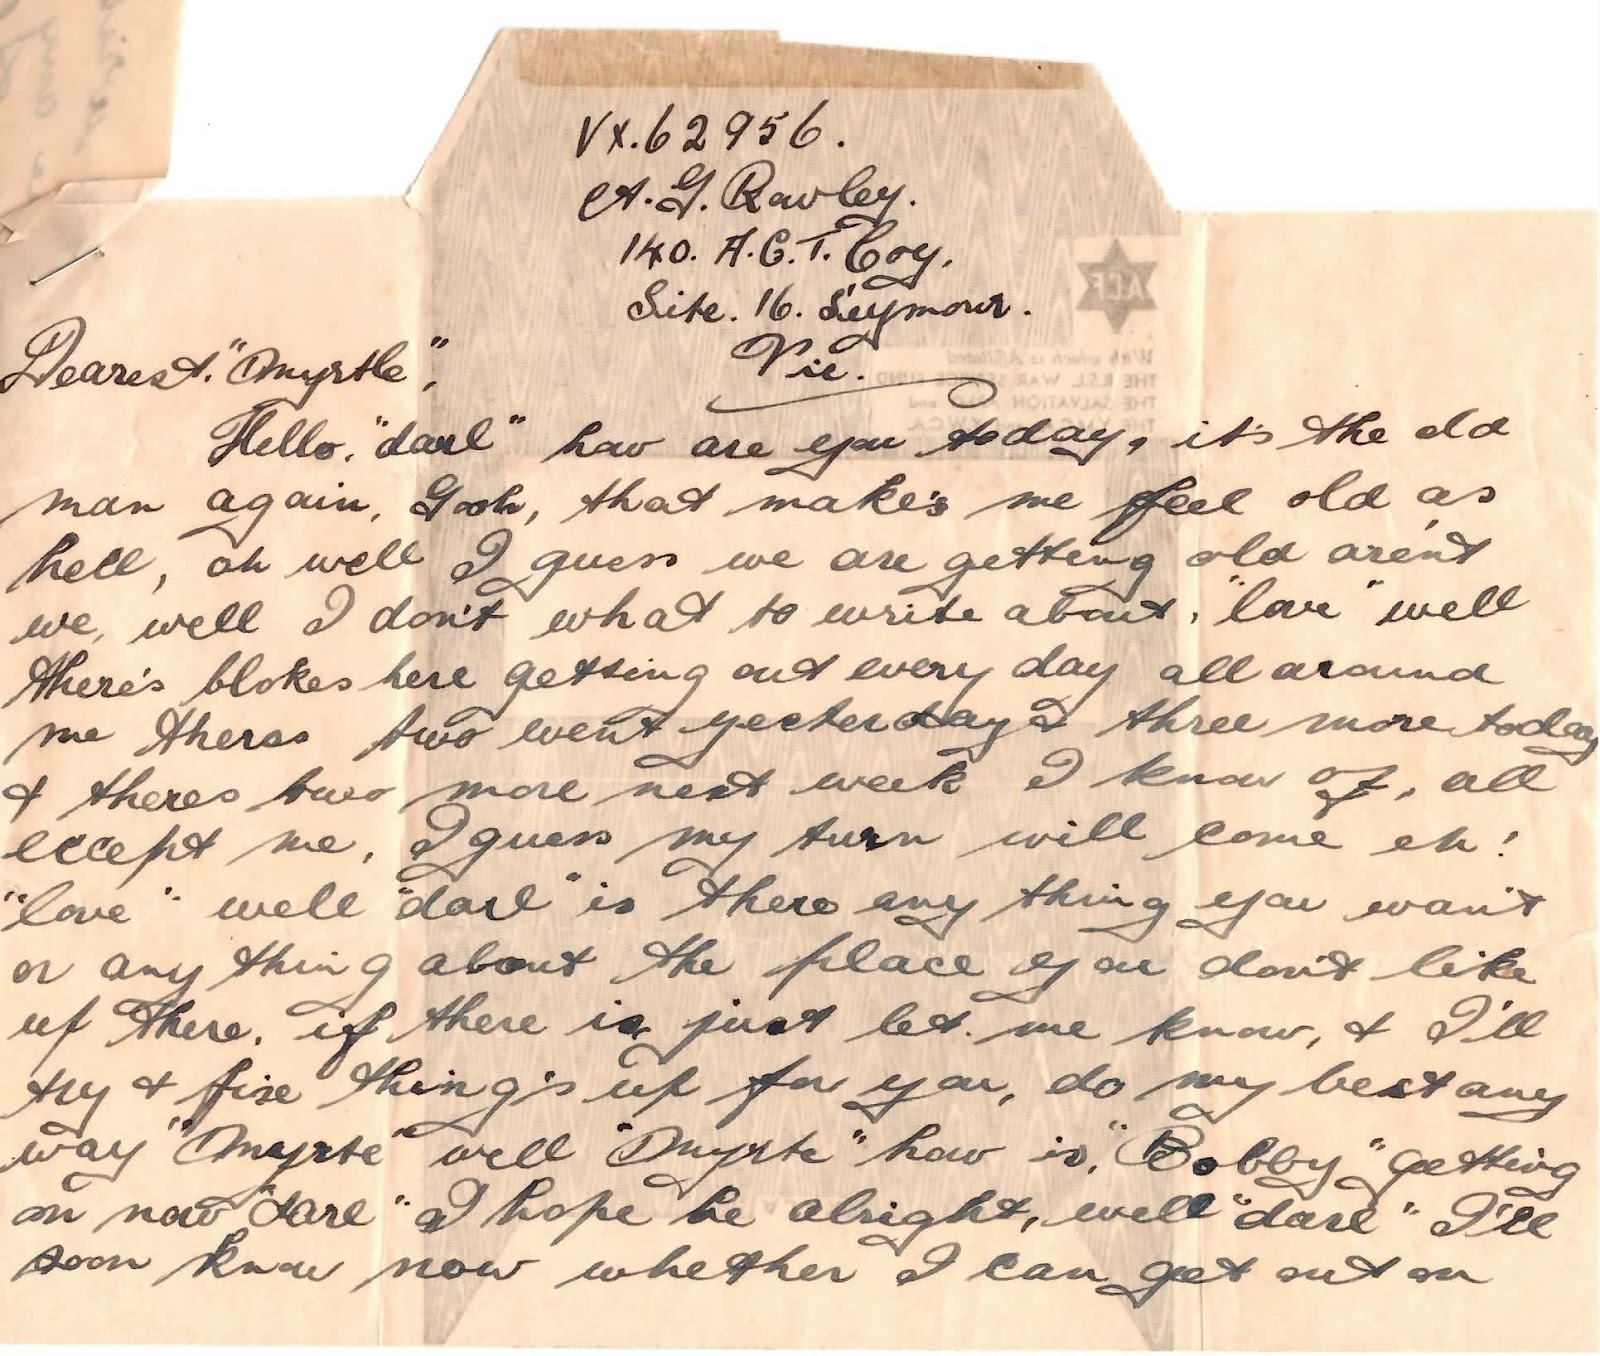 VX.62956.
A. G. Rawley.
140. A.C.T. Coy.
Site. 16. Seymour.
Vic.
Dearest. "Myrtle",
Hello. "darl" how are you today, it's the old
man again. Gosh, that make's me feel old as
hell, oh well I guess we are getting old aren't
we, well I don't what to write about. "love" well
there's blokes here getting out every day all around
me theres two went yesterday & three more today
& theres two more next week I know of, all
except me. I guess my turn will come eh!
"love" well "darl" is there any thing you wan't
or any thing about the place you don't like
up there. if there is just let me know, & I'll
try & fixe thing's up for you, do my best any
way "Myrtle" well "Myrtle" how is, "Bobby" getting
on now "darl" I hope he alright, well "darl" I'll
soon know now whether I can get out on
ACF
With which is Affiliated
THE R.S.L. WAR SERVICE FUND
THE SALVATION and